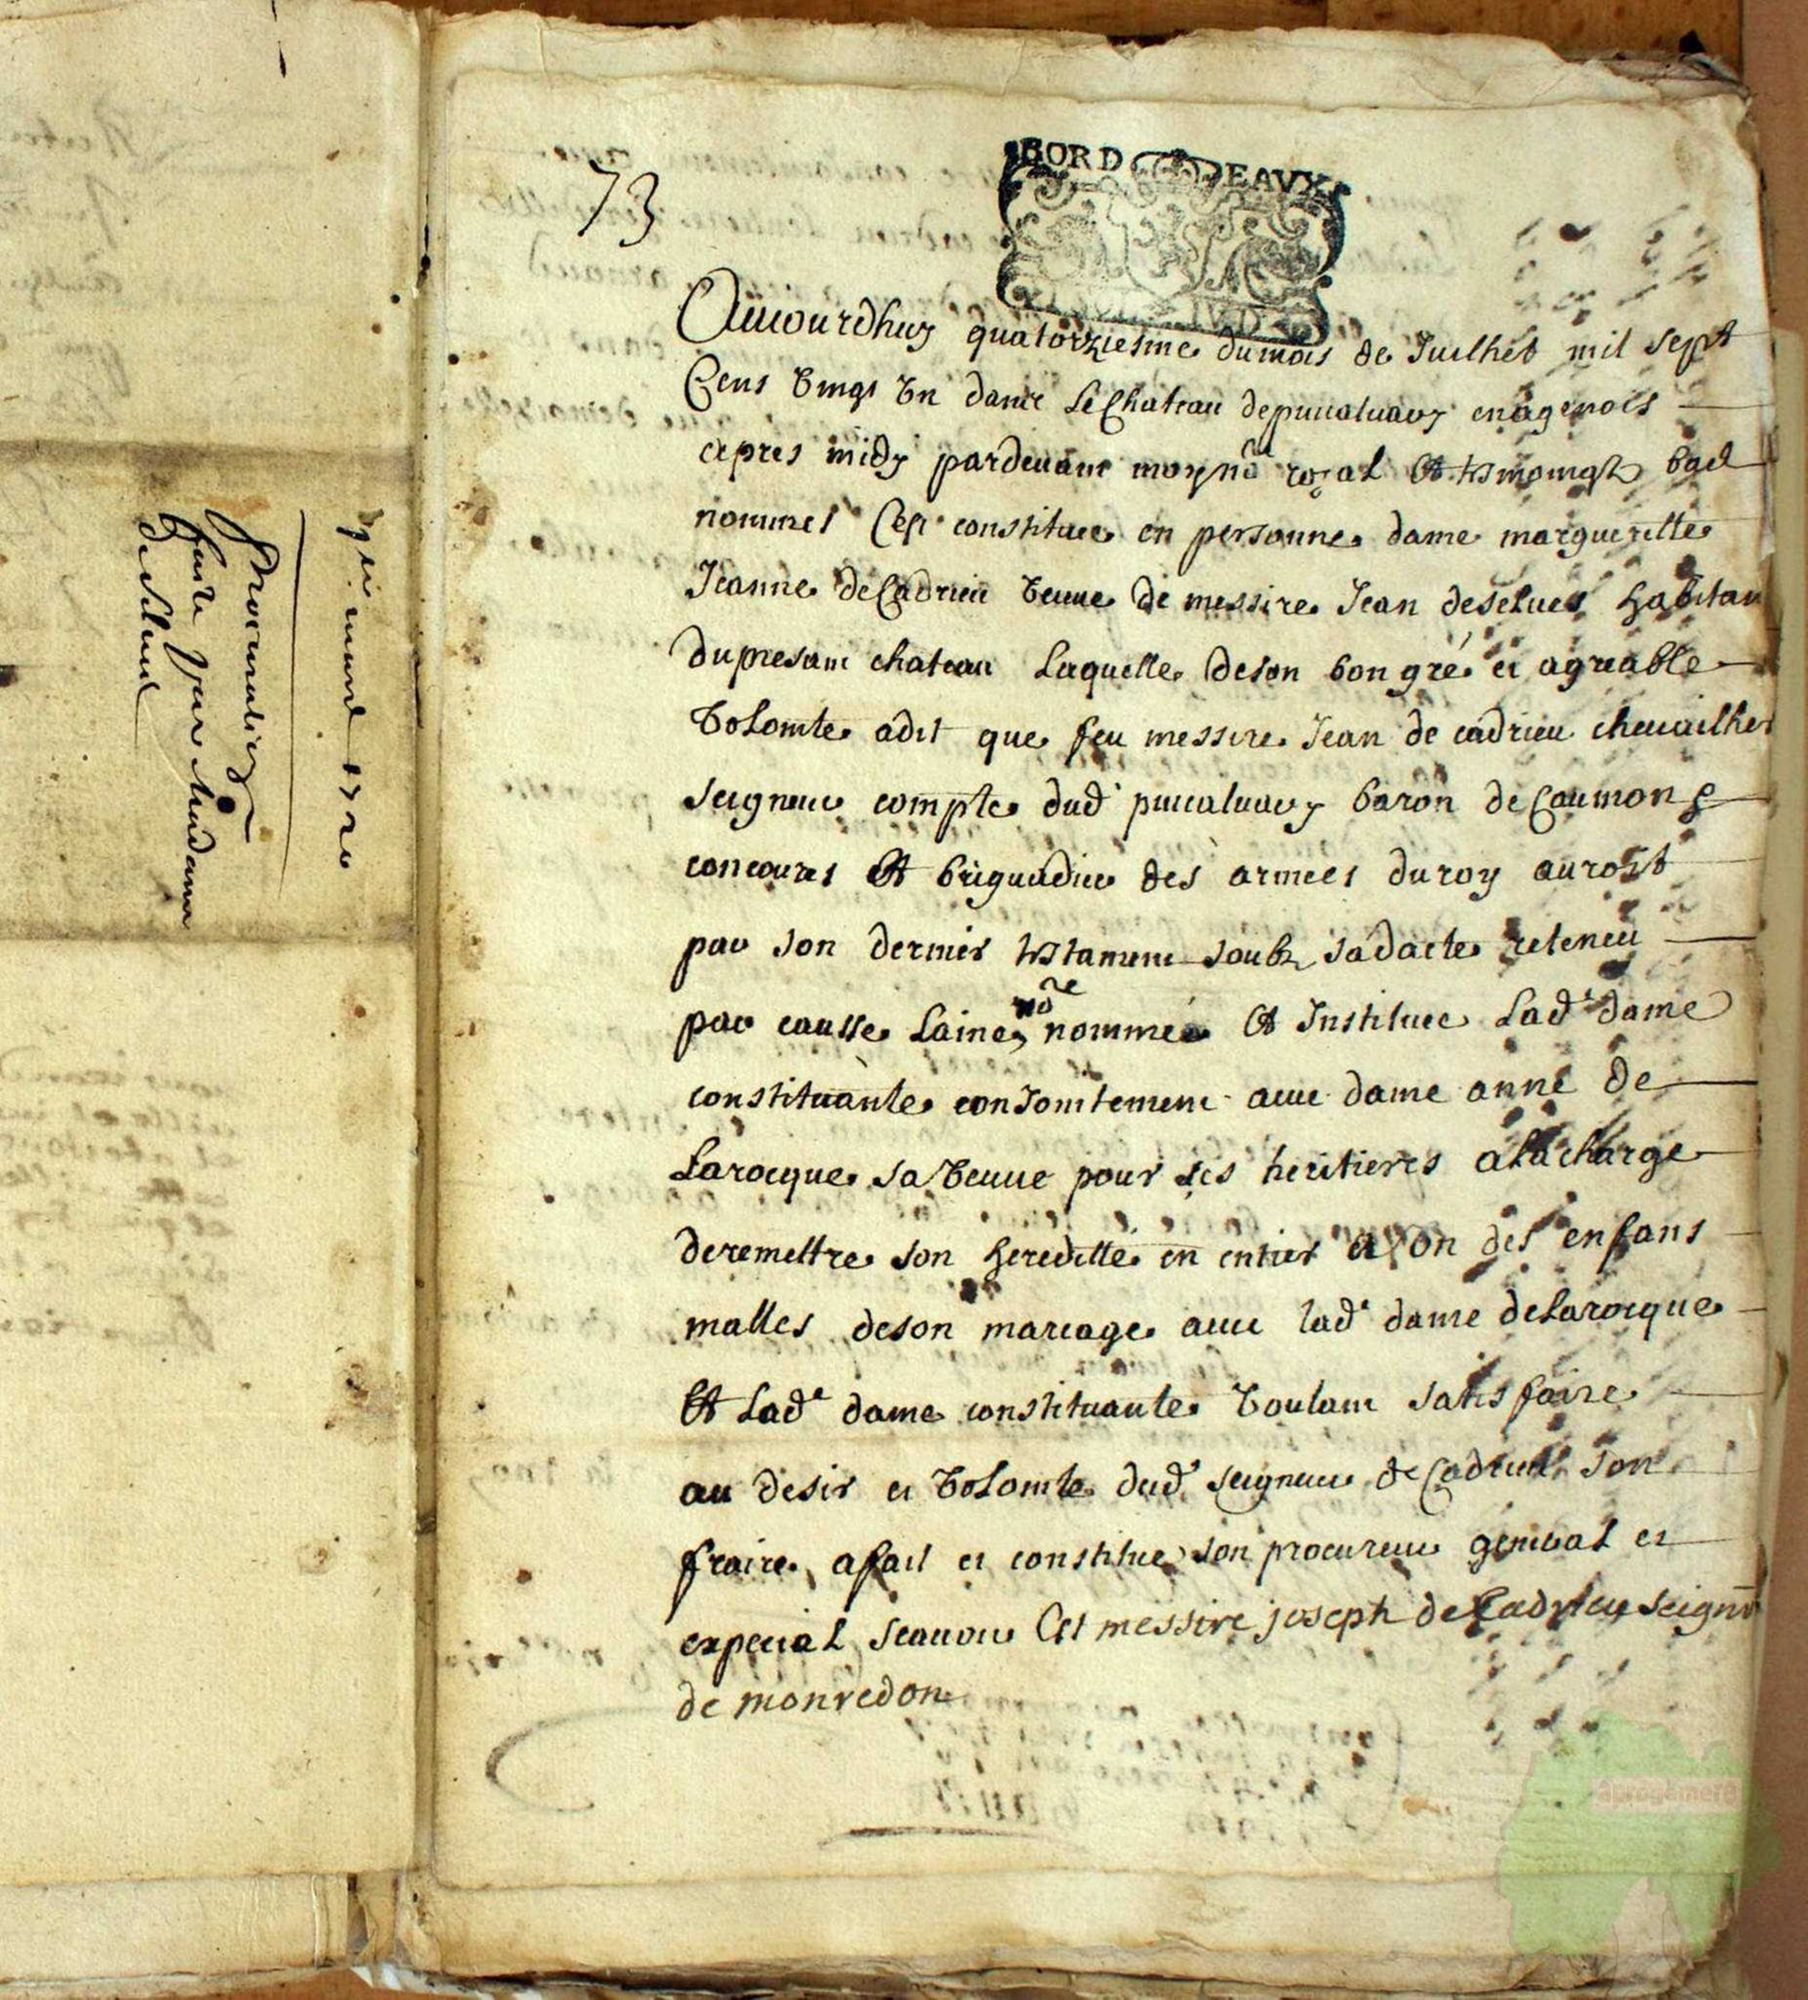 73
BORDEAUX
Aujourdhuy quatorziesme du mois de Juilhet mil sept
Cens vingt vn dans le Chateau de puicaluary en agenois
apres midy pardeuant moy no.re royal et tesmoingtz bas
nommes c'est constituee en personne dame margueritte
Jeanne de Cadrieu veuue de messire Jean de seluel habitan
du presant chateau Laquelle de son bon gré et agreable
volomte a dit que feu messire Jean de cadrieu cheuailher
seigneur compte dud puicaluary baron de Caumont
concoures et briguadier des armees du roy auroit
par son dernier testamant soubz sa dacte reteneu
par causse Laine no.re nommée et Instituee Lad.e dame
constituante conJointement auec dame anne de
Larocque sa veuue pour ses heritieres a la charge
de remettre son heredittée en entier a Lon des enfans
malles de son mariage auec lad.e dame de Larocque
et Lad.e dame constituante voulant satisfaire
au desir et volomte dud seigneur de Cadrieu son
fraire, a fait et constitue son procureur general et
expecial scauoir est messire joseph de Cadrieu seign.r
de monredon
Procuration
faite par Madame
de Seluel
aprogemere